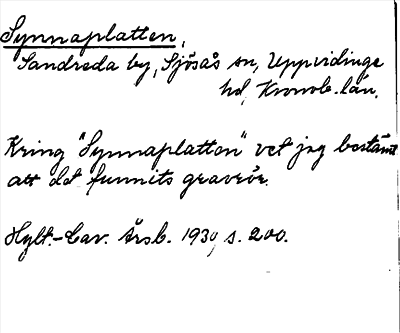 Synnaplatten,
Sandreda by, Sjösås sn, Uppvidinge
hd, Kronob. län.
Kring "Synnaplatten" vet jag bestämt
att det funnits gravrör.
Hylt.-Cav. Årsb. 1939, s. 200.